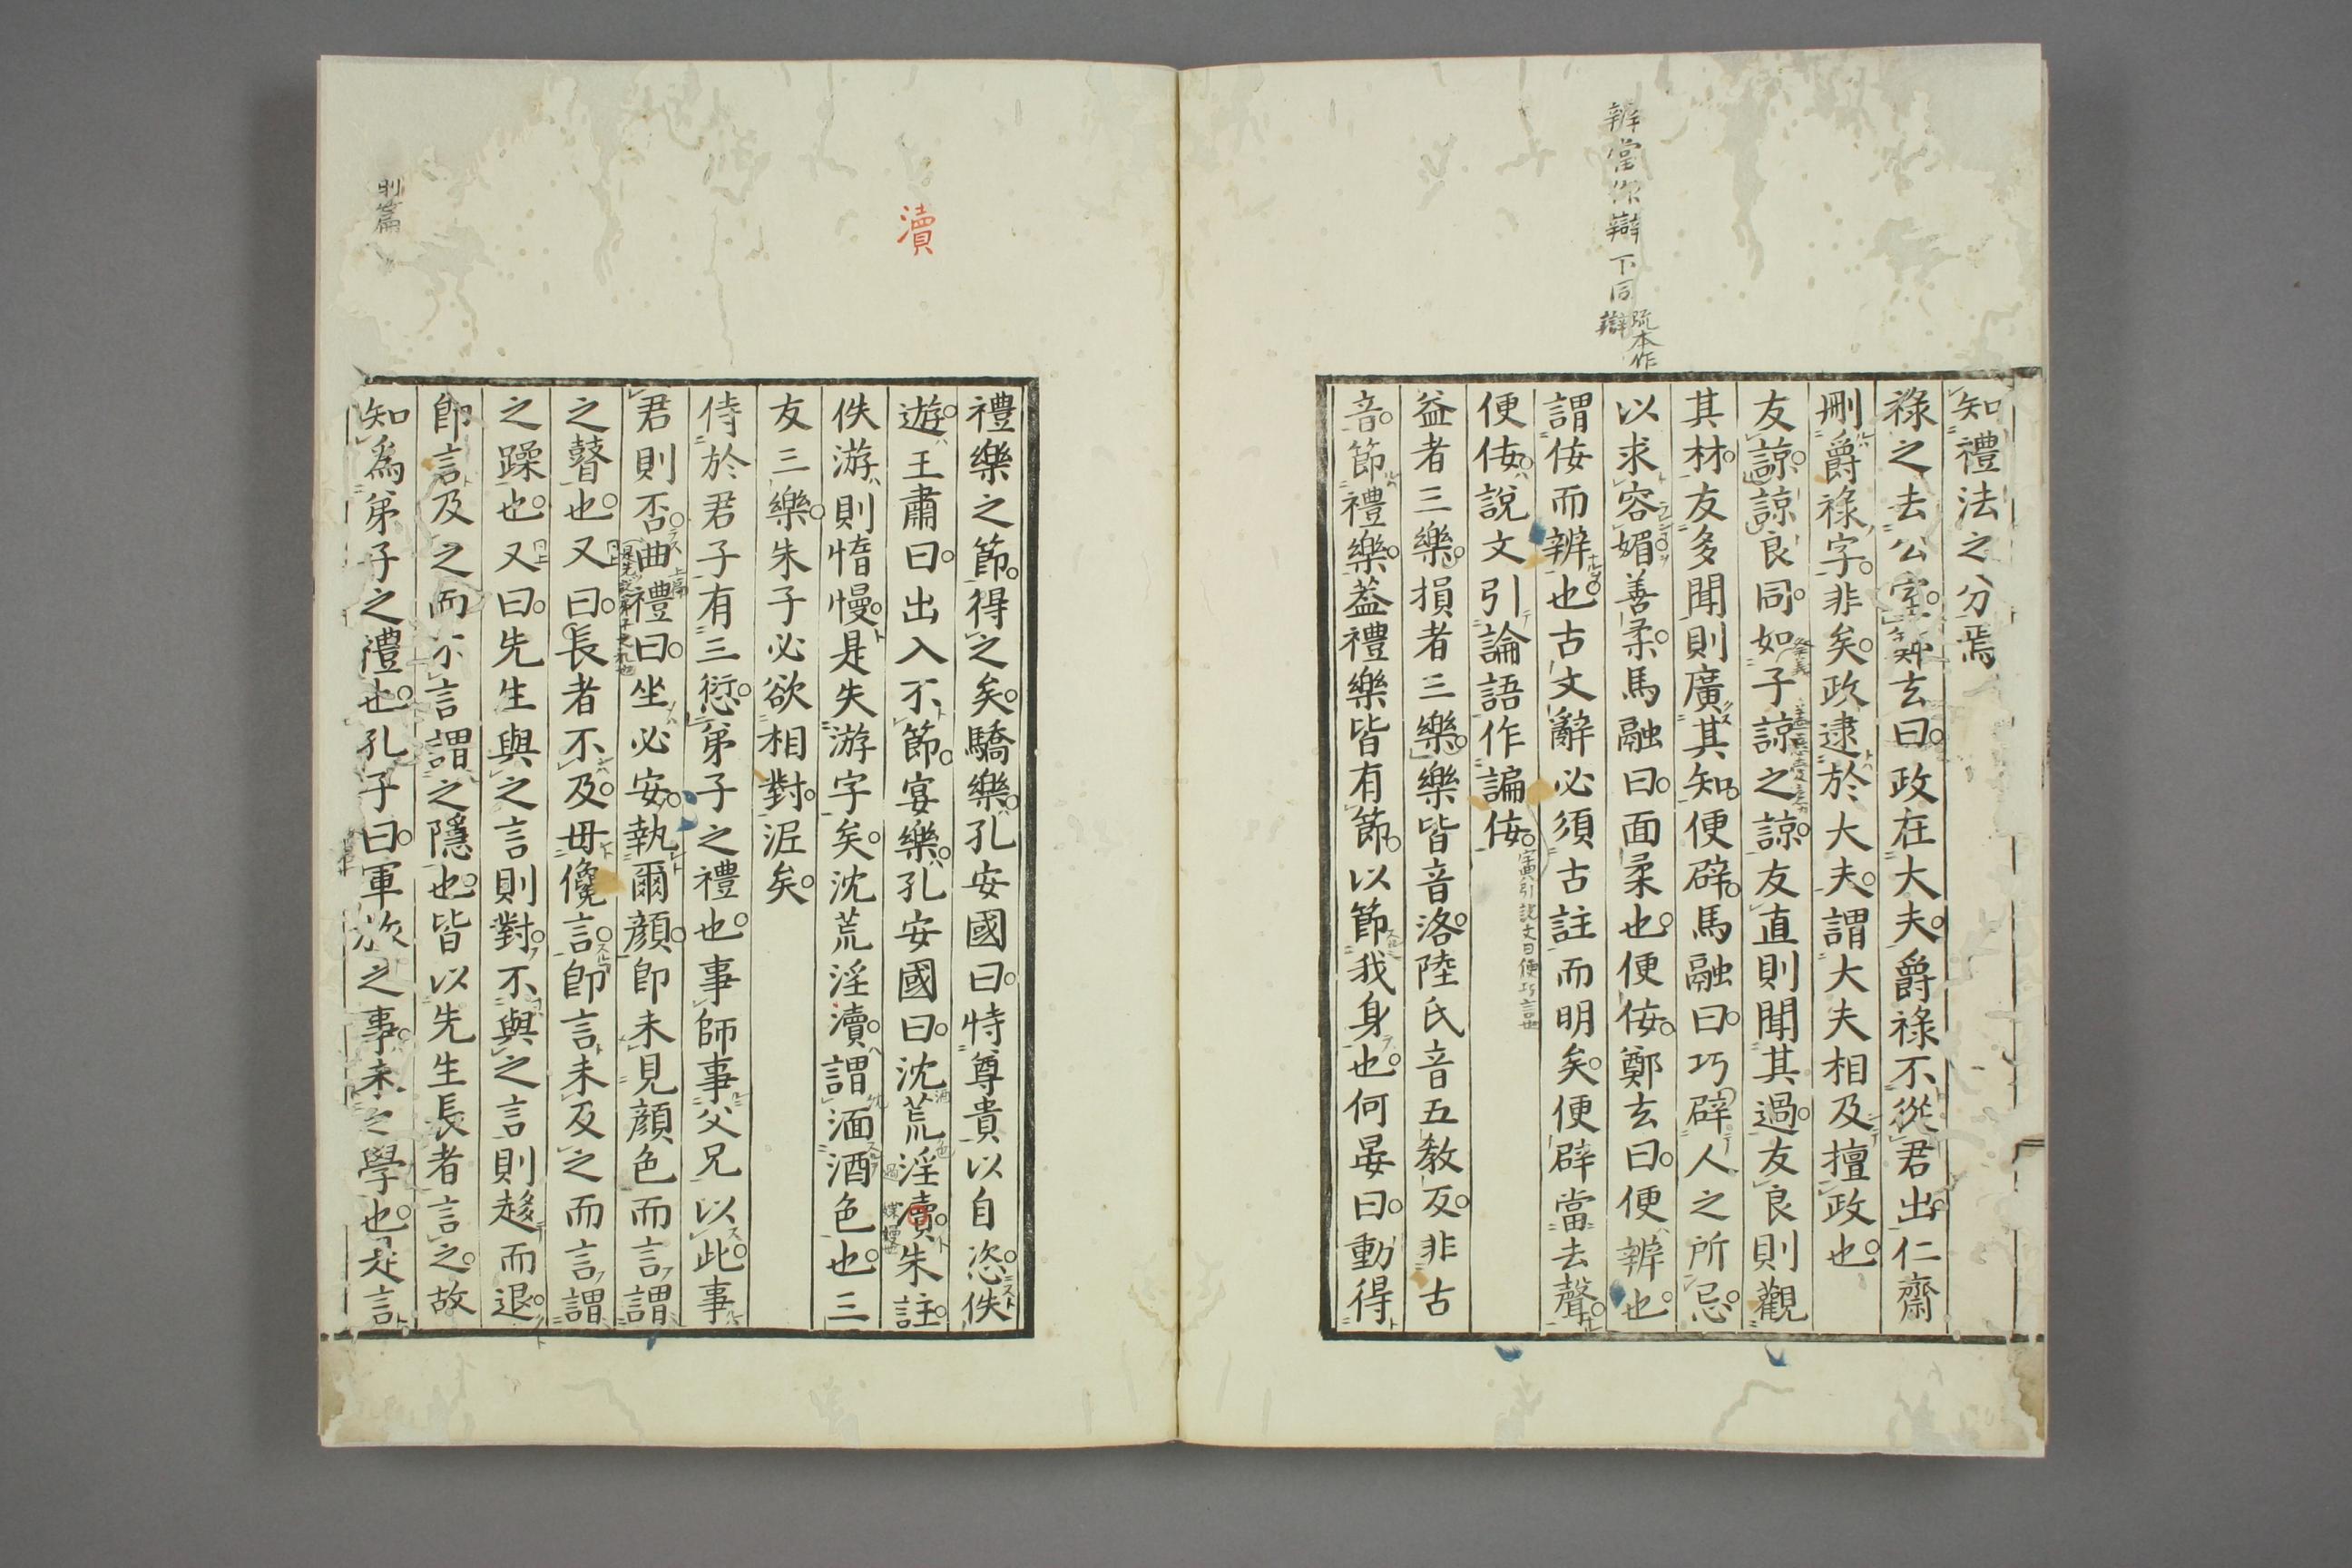 辨當作辯下同
疏本作
辯
知禮法之分焉
祿之去公室鄭玄曰政在大夫爵祿不從君出仁齋
刪爵祿字非矣政逮於大夫謂大夫相及擅政也
友諒諒良同如子諒之諒友直則聞其過友良則觀
其材友多聞則廣其知便辟馬融曰巧辟人之所忌
以求容媚善柔馬融曰面柔也便佞鄭玄曰便辨也
謂佞而辨也古文辭必須古註而明矣便辟當去聲
便佞說文引論語作諞佞
益者三樂損者三樂樂皆音洛陸氏音五教反非古
音節禮樂蓋禮樂皆有節以節我身也何晏曰動得
瀆
禮樂之節得之矣驕樂孔安國曰恃尊貴以自恣佚
遊王肅曰出入不節宴樂孔安國曰沈荒淫瀆朱註
佚游則惰慢是失游字矣沈荒淫瀆謂湎酒色也三
友三樂朱子必欲相對泥矣
侍於君子有三愆弟子之禮也事師事父兄以此事
君則否曲禮曰坐必安執爾顔卽未見顔色而言謂
之瞽也又曰長者不及毋儳言卽言未及之而言謂
之躁也又曰先生與之言則對不與之言則趨而退
卽言及之而不言謂之隱也皆以先生長者言之故
知爲弟子之禮也孔子曰軍旅之事未之學也是言